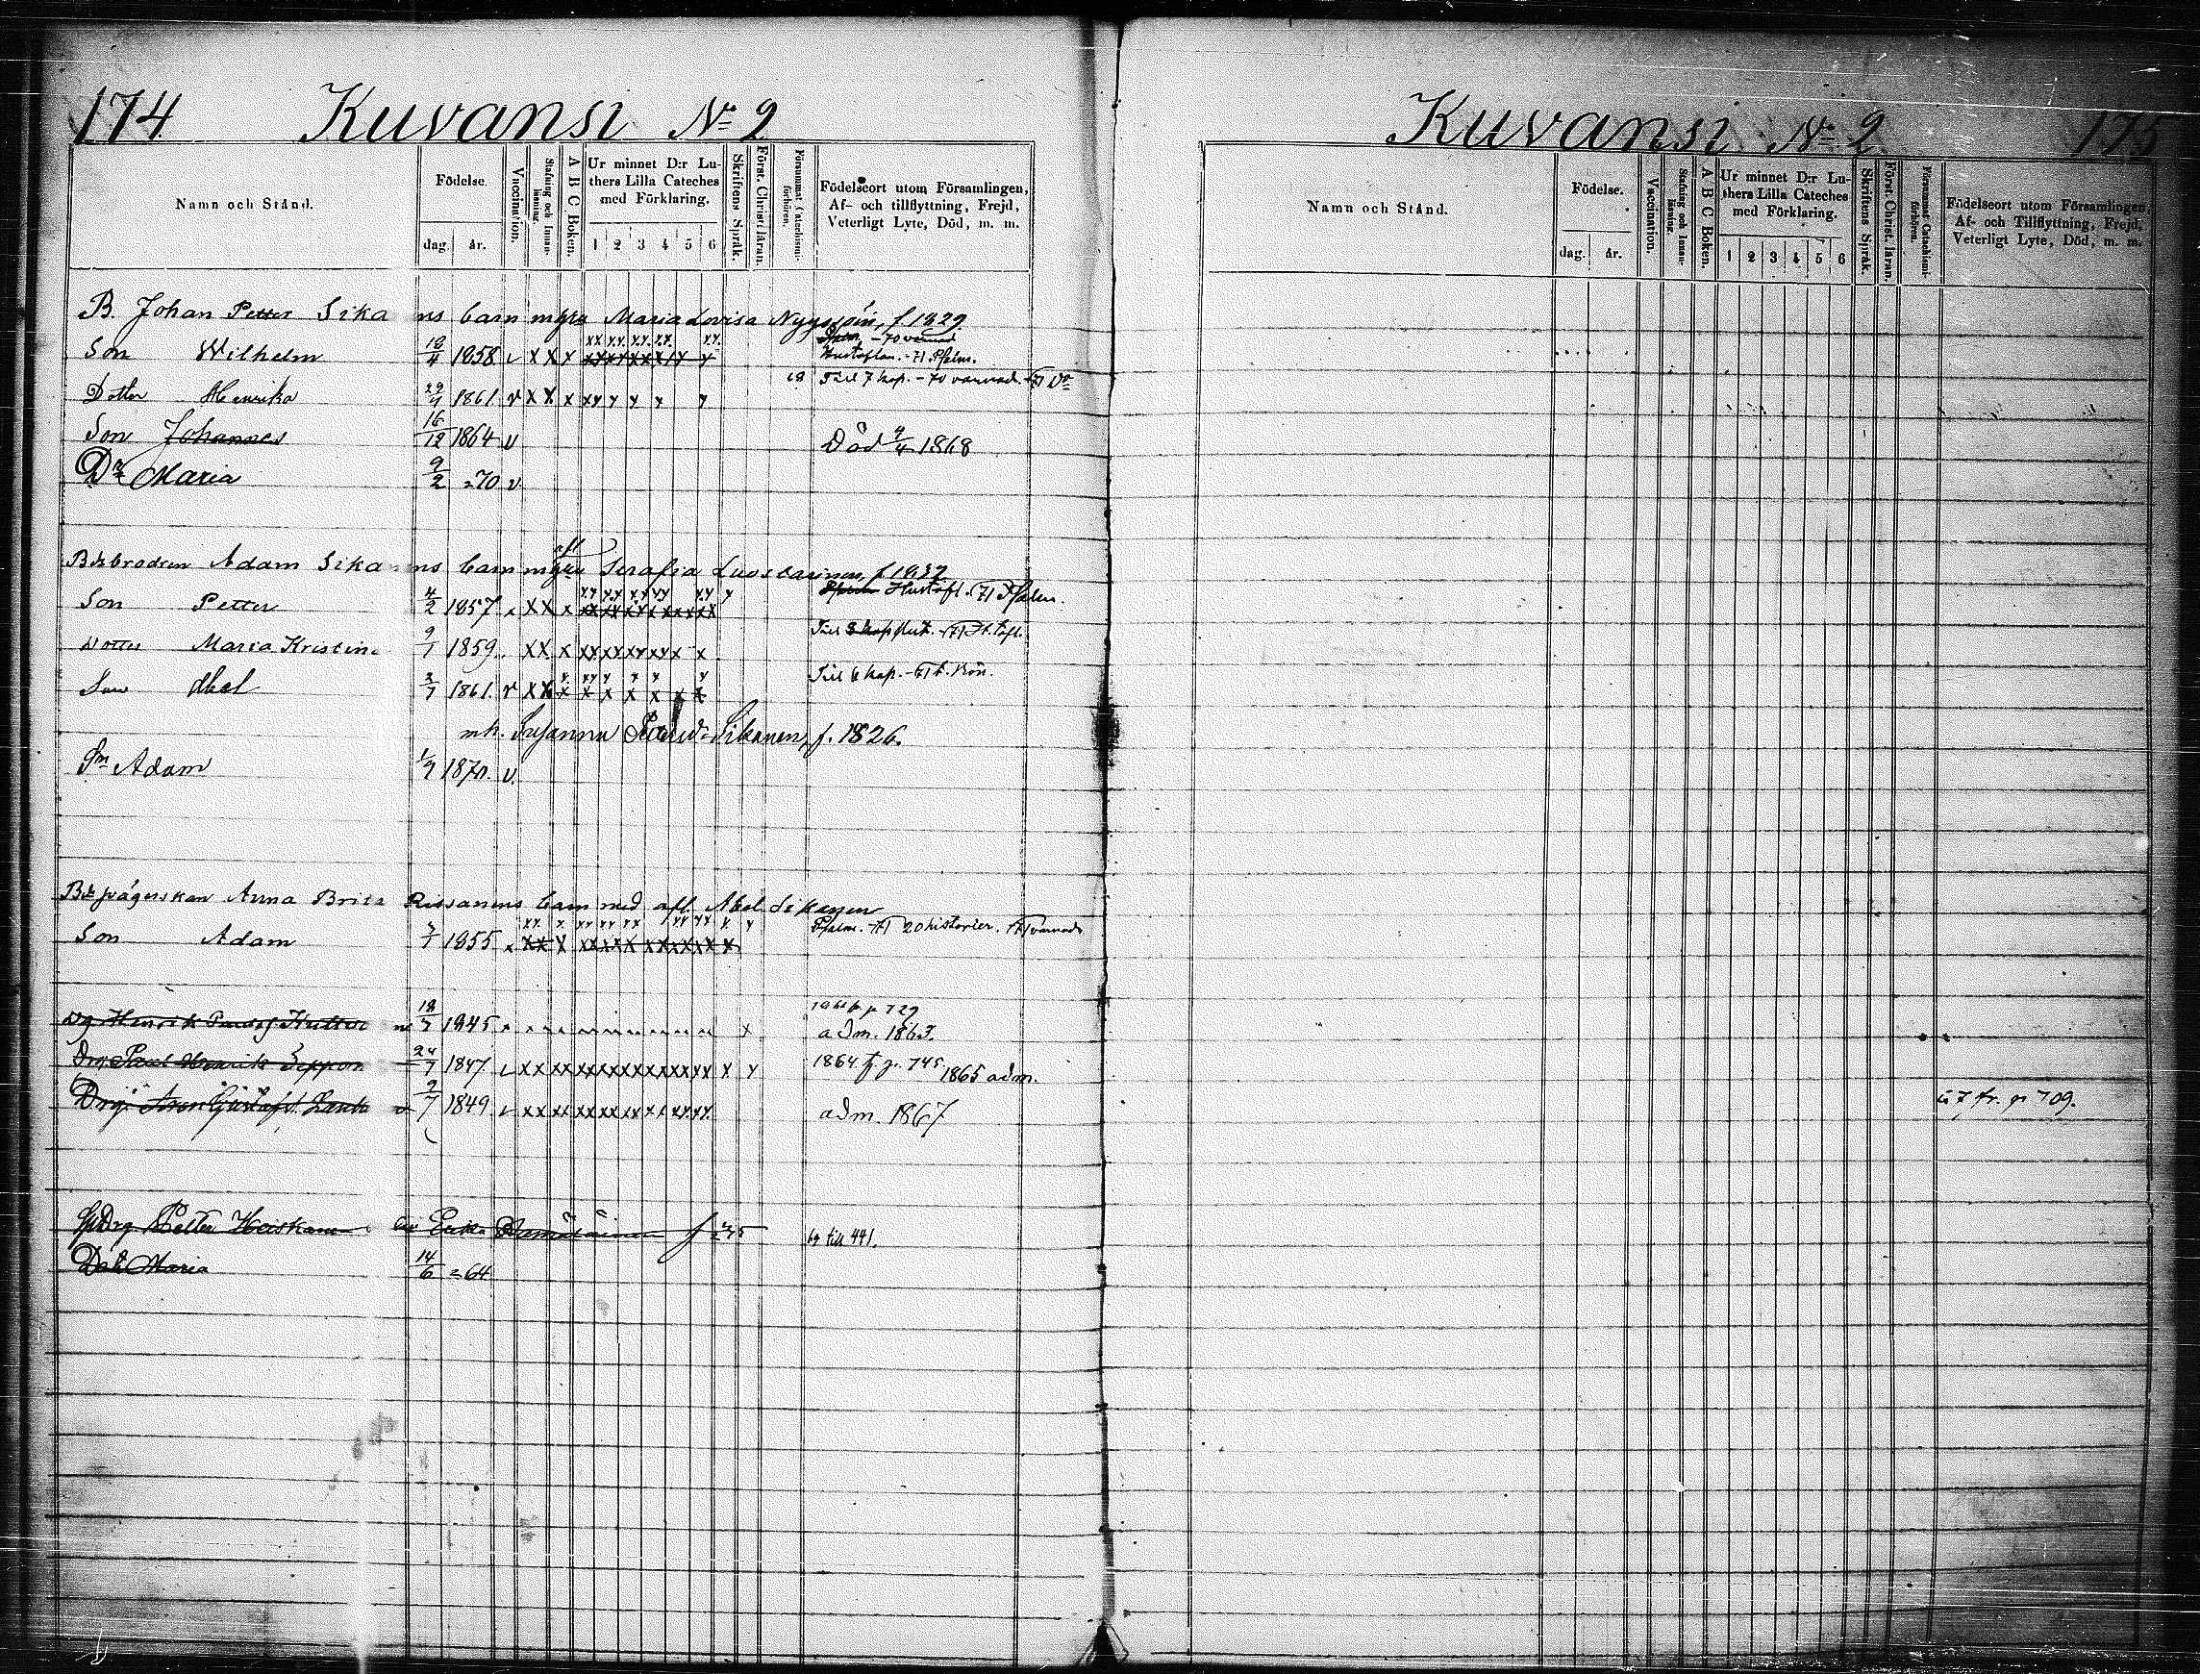 174 Kuvansi No 2
Namn och Stånd.
Födelse.
dag. år.
Vaccination.
Stafning och Innan-läsning.
A B C Boken.
Ur minnet D:r Lu-
thers Lilla Cateches
med Förklaring.
1 2 3 4 5 6
Skriftens Språk.
Först. Christ. läran.
Försummat Catechismi-förhören.
Födelseort utom Församlingen,
Af- och tillflyttning, Frejd,
Veterligt Lyte, Död, m. m.
B. Johan Petter Sikanens barn m hu Maria Lovisa Nyyssöin, f. 1829.
Son Wilhelm 18/4 1858 v x x x
-70 varnad
Hustaflan. -71 Psalm.
Dotter Henrika 29/9 1861 v x x x xy y y y y
68 Till 7 kap. -70 varnad. -71 Do
Son Johannes 16/12 1864 v Död 9/4 1868
Dr Maria 9/2 =70 v.
Bds brodren Adam Sikanens barn m afl hu Serafia Luostarinen, f. 1832
Son Petter 4/2 1857 x x x
Hustafl. -71 Psalm.
Dotter Maria Kristina 9/1 1859 x x x
Till 3 kap -71 H. tafl.
Son Abel 3/7 1861. v x x x
Till 6 kap. -71 t. Bön.
m h. Susanna Sikanen, f. 1826.
Sn Adam 1/9 187 v.
Bds svägerskan Anna Brita Rissanens barn med afl. Abel Sikanen
Son Adam 1855 x x x
Psalm. -71 20 historier. -71 varnad
Dg Henrik 18/7 1845 x
p 729
adm. 1863.
Drg Paul Henrik Seppon 24/7 1847 v x x x x
1864 f. p. 745 1865 adm.
Drg Aron Gustafs. 2/7 1849 v x x x x
adm. 1867
Drg Petter Heiskanen Erika f 35 till 441.
Dot Maria 14/6 =64
Kuvansi No 2. 175
Namn och Stånd.
Födelse.
dag. år.
Vaccination.
Stafning och Innan-läsning.
A B C Boken.
Ur minnet D:r Lu-
thers Lilla Cateches
med Förklaring.
1 2 3 4 5 6
Skriftens Språk.
Först. Christ. läran.
Försummat Catechismi-förhören.
Födelseort utom Församlingen,
Af- och Tillflyttning, Frejd,
Veterligt Lyte, Död, m. m.
67 fr. p 709.